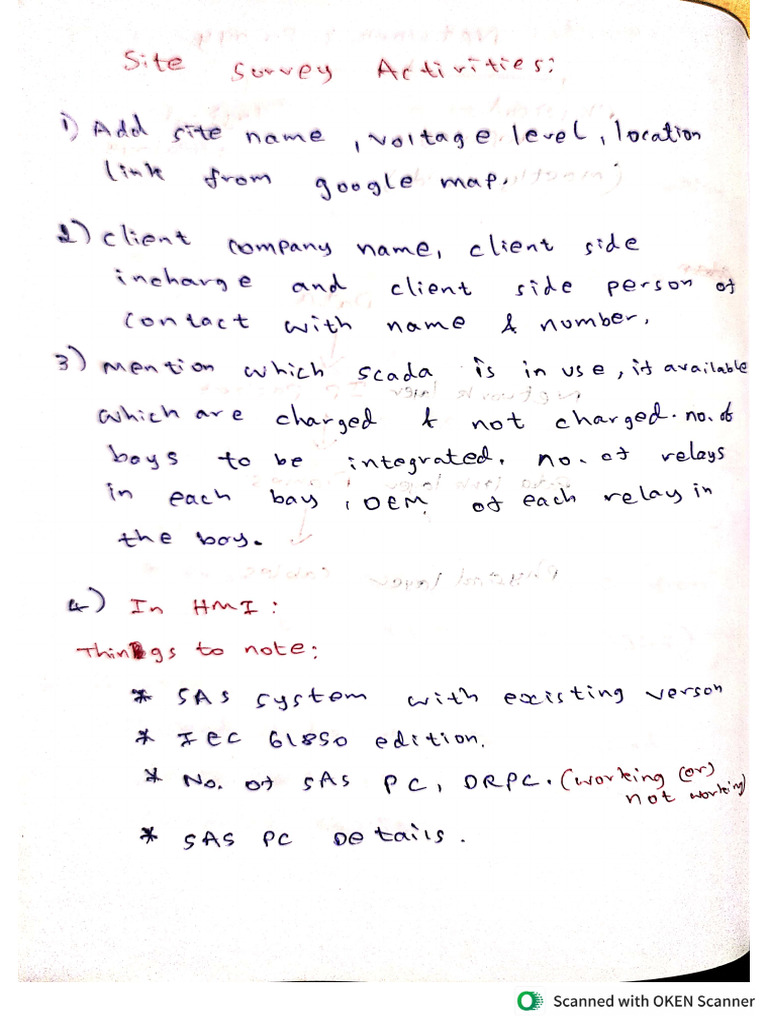 Site Survey Activities:
1) Add site name, voltage level, location
link from google map.
2) client company name, client side
incharge and client side person of
contact with name & number.
3) Mention which scada is in use, if available
which are charged & not charged. no. of
bays to be integrated. no. of relays
in each bay, OEM of each relay in
the bay.
4) In HMI:
Things to note:
* SAS system with existing verson
* IEC 61850 edition.
* No. of SAS PC, DRPC. (working (or)
not working)
* SAS PC Details.
Scanned with OKEN Scanner